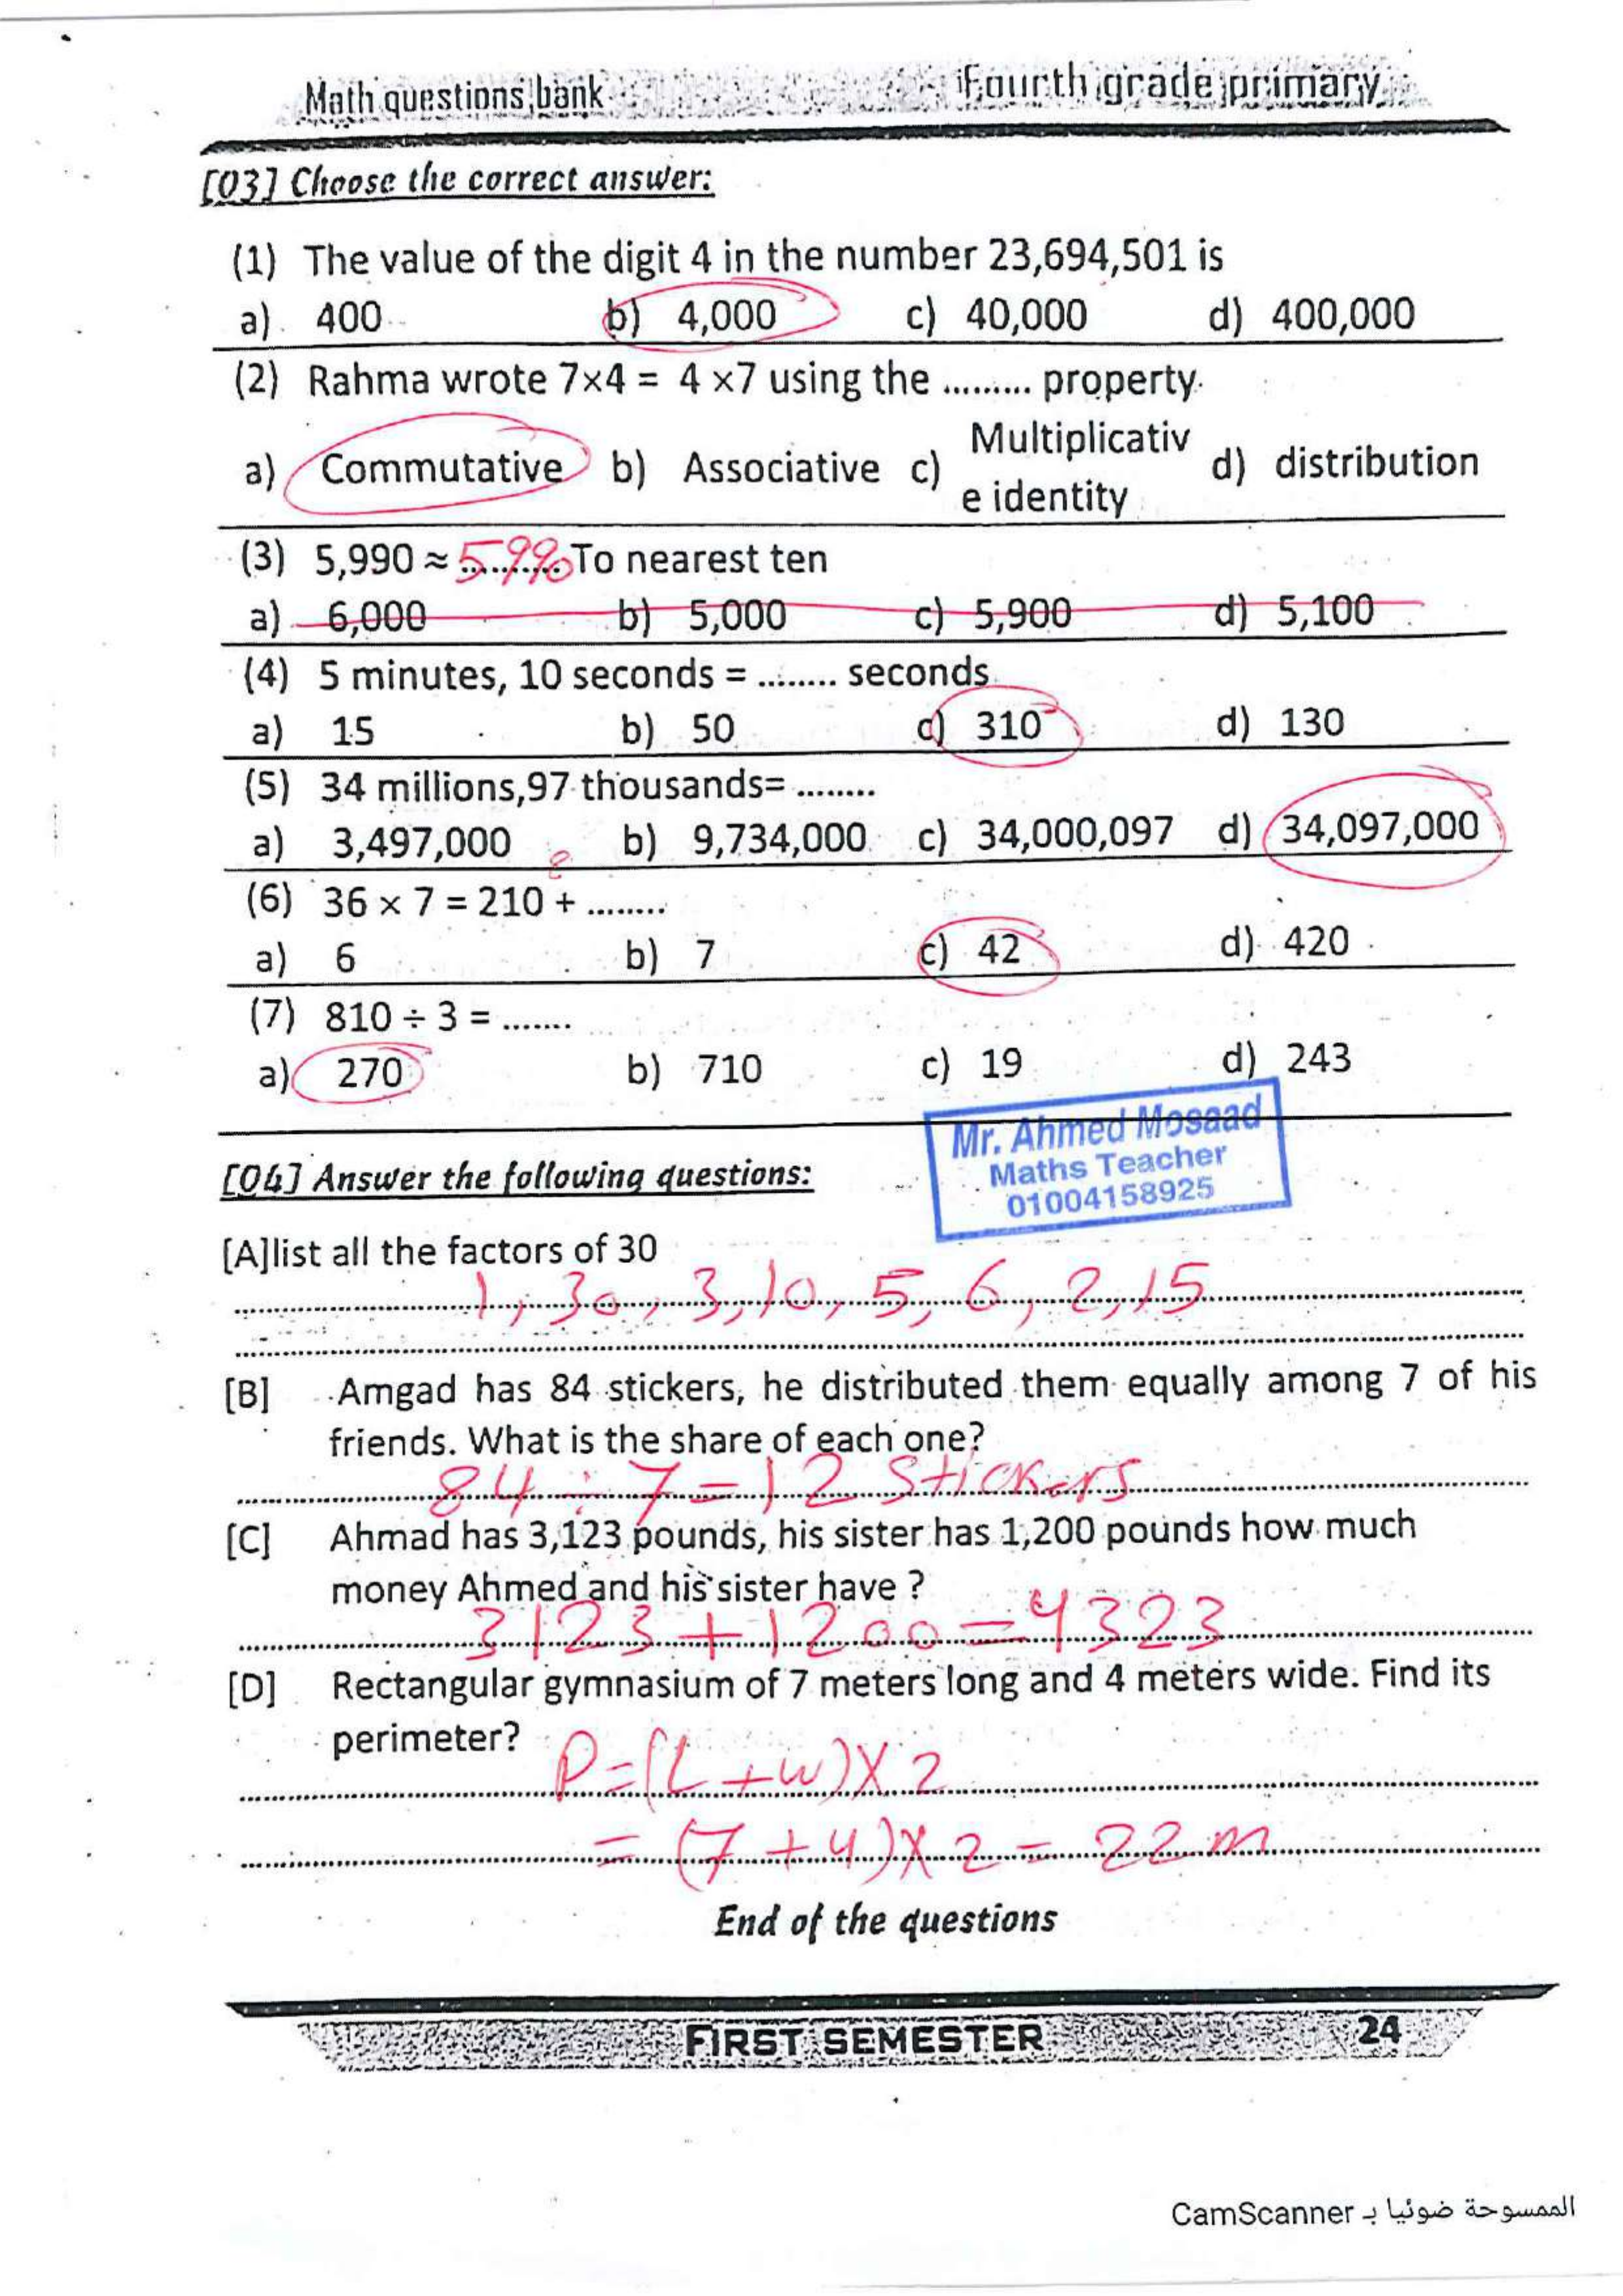 Math questions bank Fourth grade primary
[03] Choose the correct answer:
(1) The value of the digit 4 in the number 23,694,501 is
a) 400 b) 4,000 c) 40,000 d) 400,000
(2) Rahma wrote 7×4 = 4 ×7 using the ......... property
a) Commutative b) Associative c) Multiplicativ d) distribution
e identity
(3) 5,990 ≈ 5990 To nearest ten
a) 6,000 b) 5,000 c) 5,900 d) 5,100
(4) 5 minutes, 10 seconds = ........ seconds
a) 15 b) 50 c) 310 d) 130
(5) 34 millions,97 thousands= ........
a) 3,497,000 b) 9,734,000 c) 34,000,097 d) 34,097,000
(6) 36 × 7 = 210 + ........
a) 6 b) 7 c) 42 d) 420
(7) 810 ÷ 3 = .......
a) 270 b) 710 c) 19 d) 243
Mr. Ahmed Mosaad
Maths Teacher
01004158925
[04] Answer the following questions:
[A]list all the factors of 30
1, 30, 3, 10, 5, 6, 2, 15
[B] Amgad has 84 stickers, he distributed them equally among 7 of his
friends. What is the share of each one?
84 ÷ 7 = 12 stickers
[C] Ahmad has 3,123 pounds, his sister has 1,200 pounds how much
money Ahmed and his sister have ?
3123 + 1200 = 4323
[D] Rectangular gymnasium of 7 meters long and 4 meters wide. Find its
perimeter?
P = (L + W) X 2
= (7 + 4) X 2 = 22 m
End of the questions
FIRST SEMESTER 24
الممسوحة ضوئيا بـ CamScanner